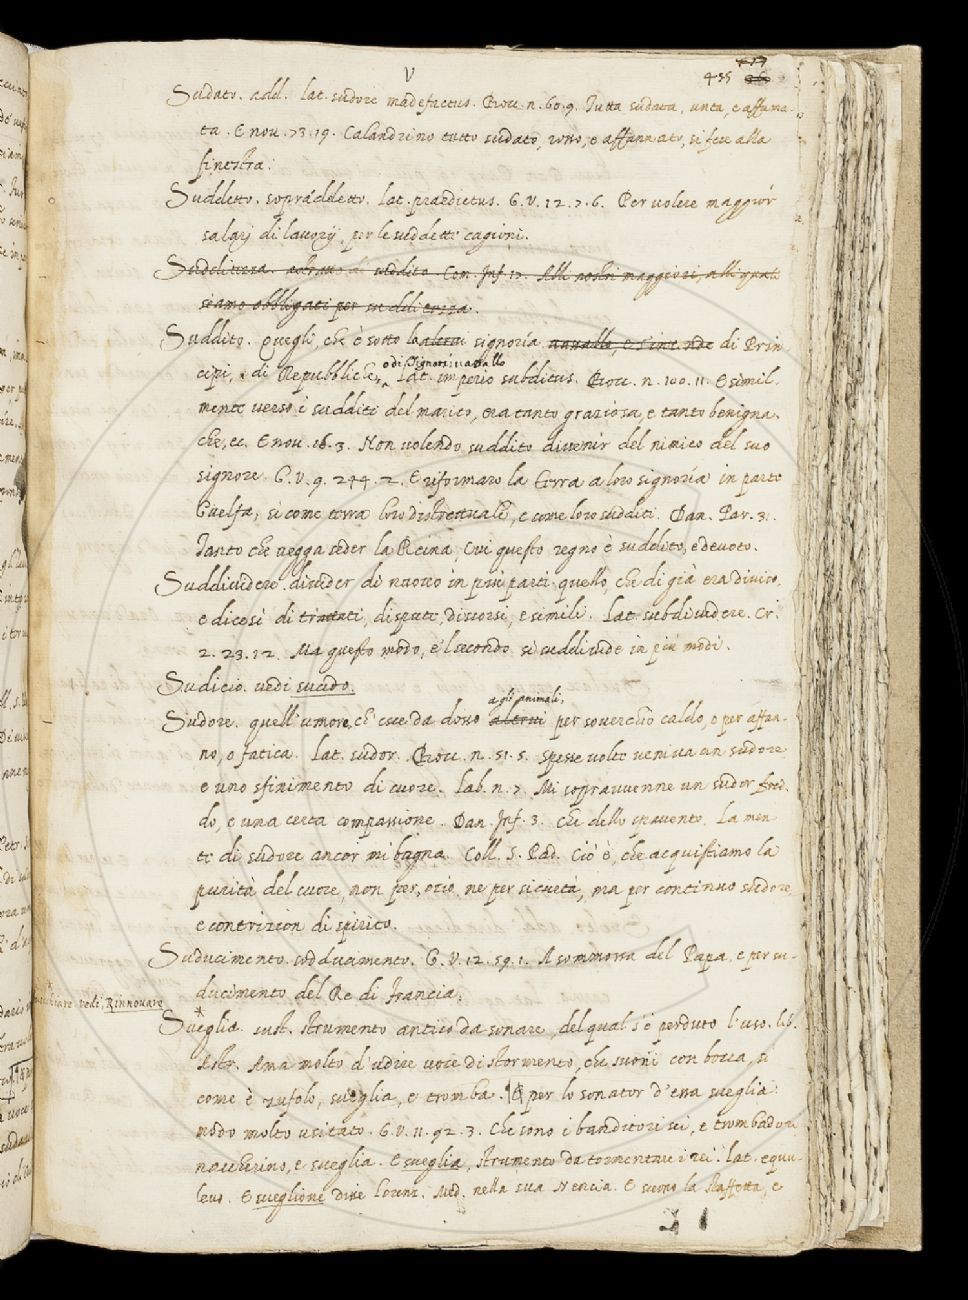 V
435
Sudato. add. lat. sudore madefactus. Bocc. n. 60. 9. Tutta sudata, unta, e affuma-
ta. E nov. 73. 19. Calandrino tutto sudato, rosso, e affannato, si fece alla
finestra.
Suddetto. sopraddetto. lat. praedictus. G. V. 12. 7. 6. Per volere maggior
salarj di lavorij, per le suddette cagioni.
Suddittezza. astratto di suddito. Com. Inf. 17. Alli nostri maggiori, alli quali
siamo obbligati per suddittezza.
Suddito. Quegli, che è sotto altrui signoria di Prin
o di Signori: vassallo
cipi, di Repubbliche, Lat. imperio subditus. Bocc. n. 100. 11. E simil-
mente verso i sudditi del marito, era tanto graziosa, e tanto benigna,
che, ec. E nov. 16. 3. Non volendo suddito divenir del nimico del suo
signore. G. V. 9. 244. 2. E riformaro la terra a loro signoria in parte
Guelfa, si come terra loro distrettuale, e come loro sudditi. Dan. Par. 31.
Tanto che vegga seder la Reina, Cui questo regno è suddito, e devoto.
Suddividere. divider di nuovo in più parti quello, che di già era diviso.
e dicesi di trattati, dispute, discorsi, e simili. Lat. subdividere. Cr.
2. 23. 12. Ma questo modo, e 'l secondo si suddivide in più modi.
Sudicio. vedi sucido.
agli animali,
Sudore. quell' umore, ch' esce da dosso altrui per soverchio caldo, o per affan-
no, o fatica. Lat. sudor. Bocc. n. 51. 5. spesse volte veniva un sudore
e uno sfinimento di cuore. Lab. n. 7. Mi sopravvenne un sudor fred-
do, e una certa compassione. Dan. Inf. 3. che dello spavento. La men
te di sudore ancor mi bagna. Coll. S. Pad. Ciò è, che acquistiamo la
purità del cuore, non per ozio, ne per sicurtà, ma per continuo sudore
e contrizion di spirito.
Suducimento. sodducimento. G. V. 12. 59. 1. A sommossa del Papa, e per su-
ducimento del Re di Francia.
vedi Rinnovare
Sveglia. sust. strumento antico da sonare, del qual s' è perduto l' uso. lib.
Astr. Ama molto d' udire voce di stormento, che suoni con bocca, si
come è zufolo, sveglia, e tromba. per lo sonator d' essa sveglia.
modo molto usitato. G. V. 11. 92. 3. Che sono i banditori sei, e trombadori
naccherino, e sveglia. E sveglia, strumento da tormentare i rei. Lat. equu-
leus. E sveglione disse Lorenz. Med. nella sua Nencia. E suono la staffetta, e